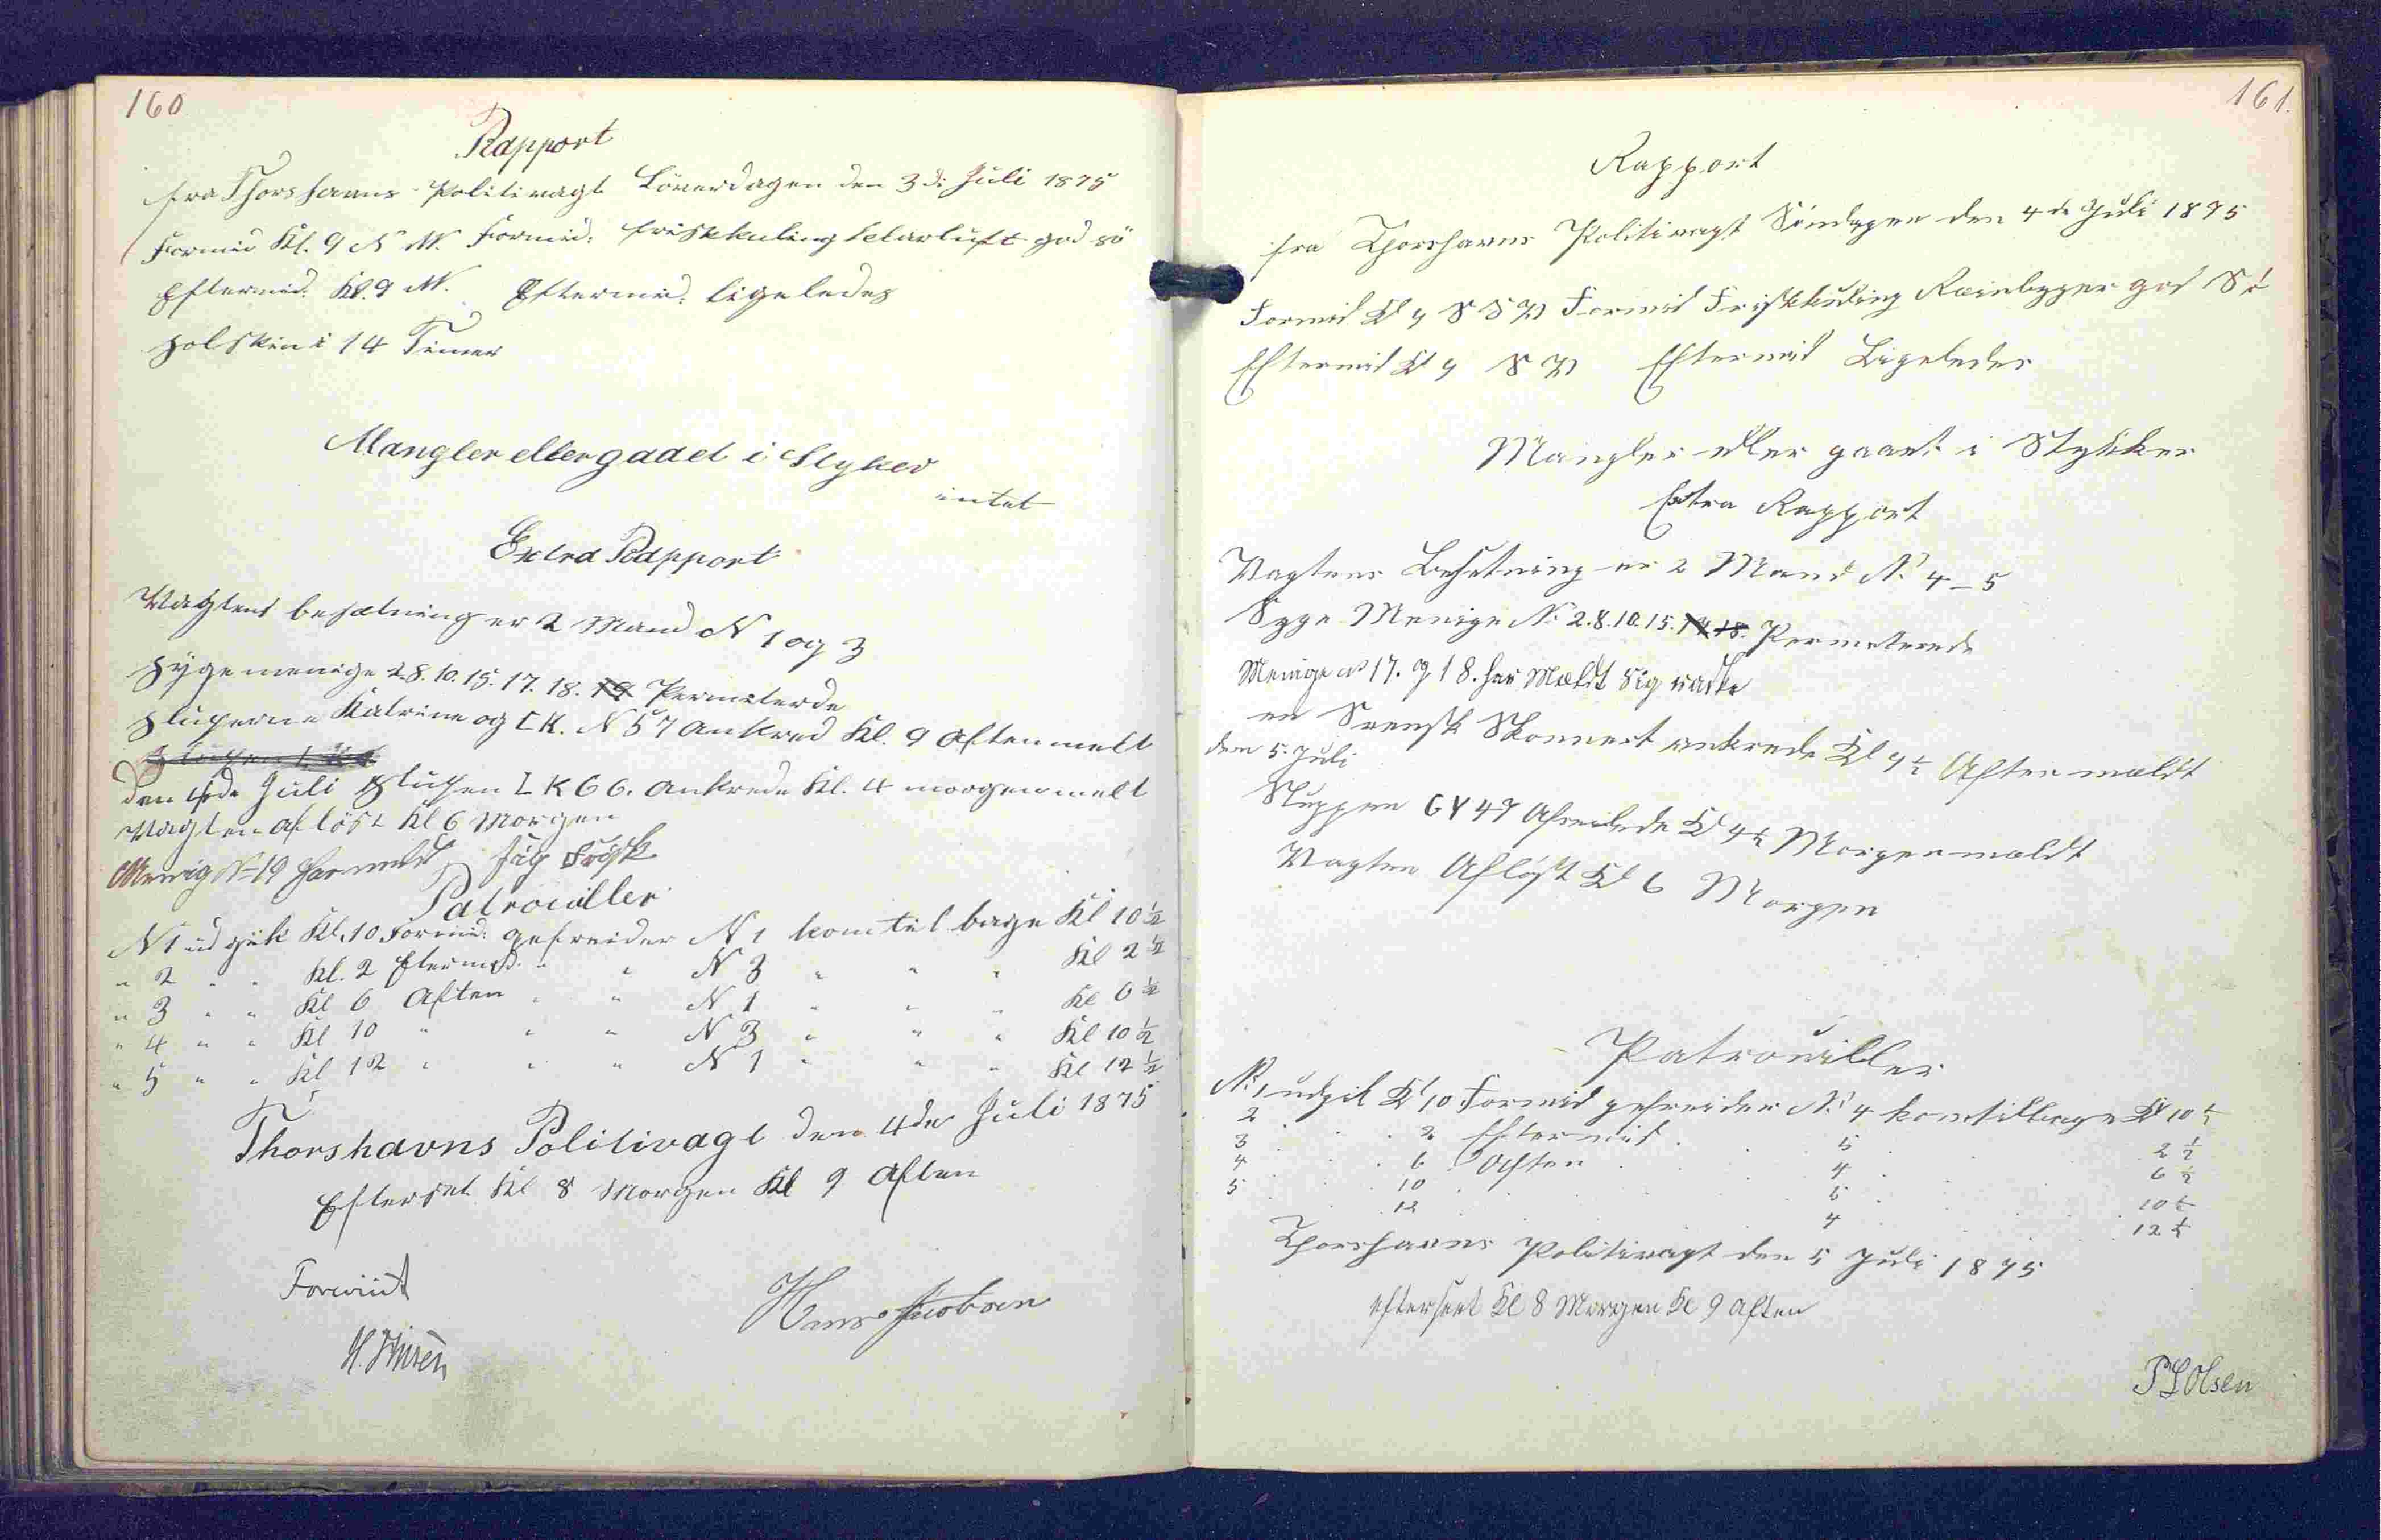 160
Rapport
fra Thorshavns Politivagt Löverdagen den 3di Juli 1875
Formid Kl. 9 N W. Formid: friskkuling klarluft god sö
Eftermid. Kl. 9 W. Eftermid: ligeledes
solskin i 14 Timer
Mangler eller gaaet i Styker
intet
Extra Rapport
Vagtens besætning er 2 Mand N 1 og 3
syge menige 2.8.10.15.17.18. 19 Permeterde
sluperne Katrine og LK. N 57 ankred Kl. 9 aften melt
den 4de Juli slupen LK 66. ankrede Kl. 4 morgen melt
Vagten aflöst Kl 6 Morgen
Menig No 19 har meldt sig frisk
Patrouiller
N 1 ud gik Kl. 10 Formid: gefreider N 1 kom tilbage Kl 10 ½
" 2 " " Kl. 2 Eftermid. " " N 3 " " " Kl 2 ½
" 3 " " Kl 6 Aften " " N 1 " " " Kl 6 ½
" 4 " " Kl 10 " " " N 3 " " " Kl 10 ½
" 5 " " Kl 12 " " " N 1 " " " Kl 12 ½
Thorshavns Politivagt den 4de Juli 1875
Efterset Kl 8 Morgen Kl 9 Aften
Hans Jacobsen
161.
Rapport
fra Thorshavns Politivagt Söndagen den 4de Juli 1875
Formid Kl 9 S S W Formid Friskkuling Reinbyger god Sö
Eftermid Kl 9 S W Eftermid Ligeledes
Mangler eller gaaet i Stykker
Extra Rapport
Vagtens Besetning er 2 Mand No 4 – 5
Syge Menige No 2.8.10.15. 17 18. Permeterede
Menige no 17. og 18. har Mældt Sig raske
en Svensk Skonnert ankrede Kl 9 ½ Aften mældt
den 5. Juli
Sluppen GY 47 Afseilede Kl 4 ½ Morgen mældt
Vagten Aflöst Kl 6 Morgen
Patrouiller
No 1 udgik Kl 10 Formid gefreider No 4 kom tilbage Kl 10 ½
2 . . . 2 Eftermid . . 5 . . . 2 ½
3 . . . 6 Aften . . 4 . . . 6 ½
4 . . . 10 . . . 5 . . . 10 ½
5 . . . 12 . . . 4 . . . 12 ½
Thorshavns Politivagt den 5 Juli 1875
efterseet Kl 8 Morgen Kl 9 aften
P L Olsen